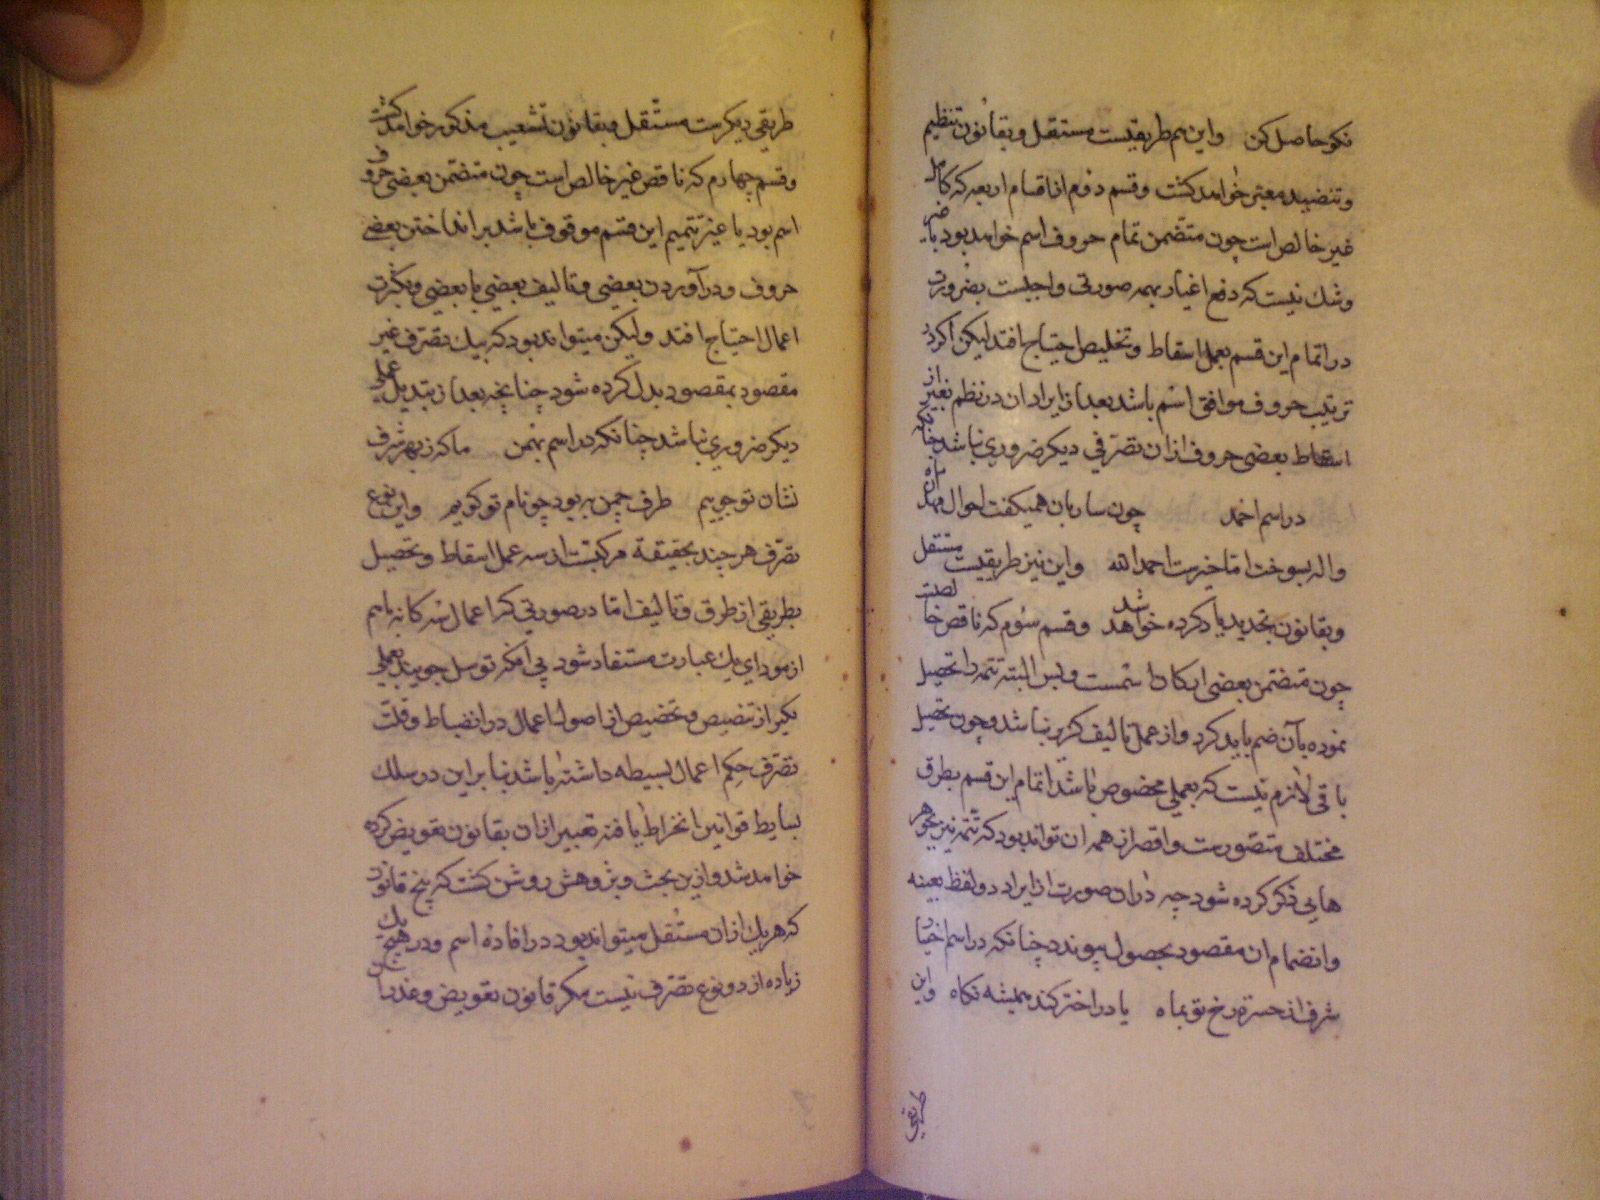 نکو حاصل کن واین هم طریقیست مستقل و بقانون تنظیم
وتنضید معبر خواهد کشت وقسم دوم از اقسام اربعه که کامل
غیر خالص است چون متضمن تمام حروف اسم خواهد بود با غیر
وشك نیست که دفع اغیار بهمه صورتی واجبست بضرورت
در اتمام این قسم بعمل اسقاط وتخلیص احتیاج افتد لیکن اکر در
ترتیب حروف موافق اسم باشد بعد از ایراد آن در نظم بغیر از
اسقاط بعضی حروف ازان تصرفی دیکر ضروری نباشد چنانکه
در اسم احمد چون ساربان همیکفت احوال
واله بسوخت اما خیرست احمد الله واین نیز طریقیست مستقل
وبقانون تحدید یاد کرده خواهد شد وقسم سوم که ناقص خالصست
چون متضمن بعضی ارکان اسمست وبس البته تتمه را تحصیل
نموده بآن ضم باید کرد واز عمل تالیف کزیر نباشد وچون تحصیل
باقی لازم نیست که بعملی مخصوص باشد اتمام این قسم بطرق
مختلف متصورست واقصر از همه ان تواند بود که تتمه نیز بجوهر
هایی ذکر کرده شود چه دران صورت از ایراد دو لفظ بعینه
وانضمام ان مقصود بحصول پیوندد چنانکه در اسم
شرف از رخ تو بماه یا در اختر کند همیشه نکاه واین
طریقی
طریقی دیکرست مستقل وبقانون تشعیب مذکور خواهد کشت
وقسم چهارم که ناقص غیر خالص است چون متضمن بعضی حروف
اسم بود با غیر تتمیم این قسم موقوف باشد بر انداختن بعضی
حروف ودر آوردن بعضی وتالیف بعضی با بعضی وبکثرت
اعمال احتیاج افتد ولیکن میتواند بود که بیك تصرف غیر
مقصود بمقصود بدل کرده شود چنانچه بعد از تبدیل عملی
دیکر ضروری نباشد چنانکه در اسم بهمن ما که ز بهر شرف
نشان تو جوییم طرف چمن به بود چو نام تو کوییم واین نوع
تصرف هر چند بحقیقة مرکبست از سه عمل اسقاط وتحصیل
بطریقی از طرق وتالیف اما در صورتی که اعمال سه کانه باسم
از مودای یك عبارت مستفاد شود بی آنکه توسل جویند بعملی
دیکر از تنصیص وتخصیص از اصول اعمال در انضباط وقلت
تصرف حکم اعمال بسیطه داشته باشد بنا براین در سلك
بسایط قوانین انخراط یافته تعبیر ازان بقانون تعویض کرده
خواهد شد وازین بحث وپژوهش روشن کشت که پنج قانون
که هریك ازان مستقل میتواند بود در افاده اسم ودر هیچ یك
زیاده از دو نوع تصرف نیست مکر قانون تعویض